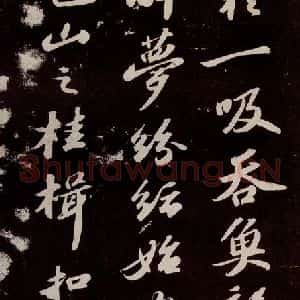 一吸吞魚
夢紛紜始
山之桂楫扣
Shufawang.CN